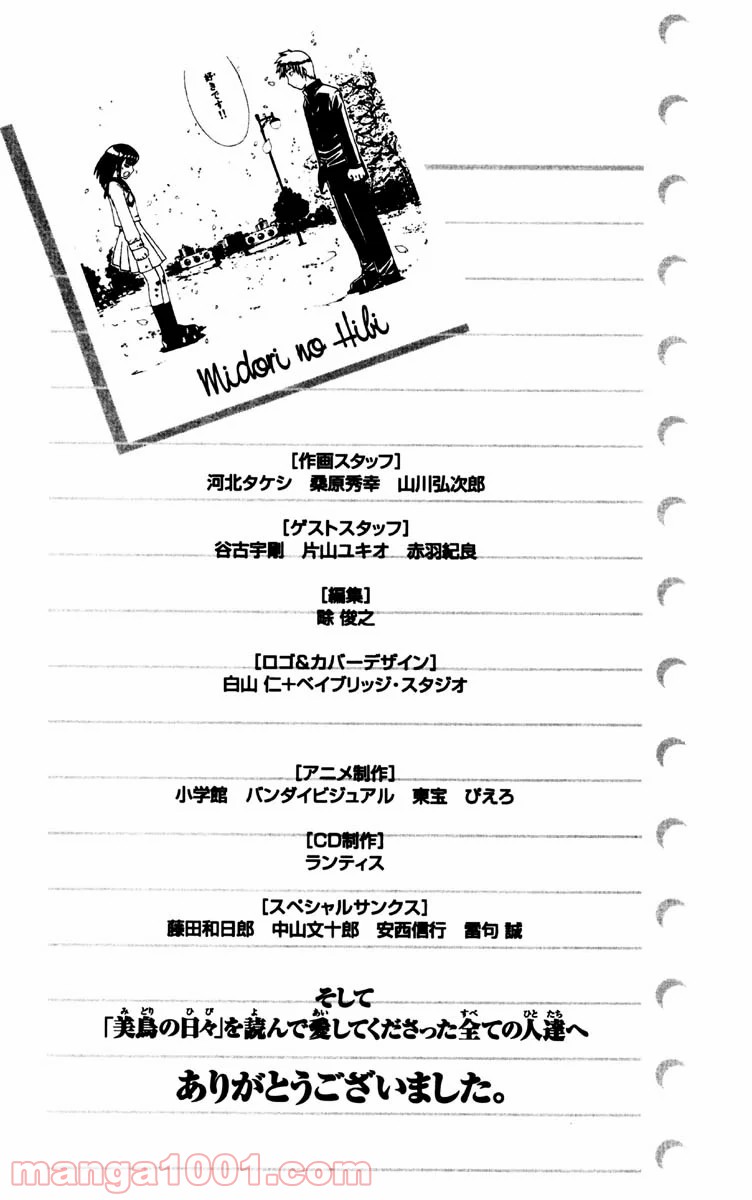 好きです!!
Midori no Hibi
[作画スタッフ]
河北タケシ 桑原秀幸 山川弘次郎
[ゲストスタッフ]
谷古宇剛 片山ユキオ 赤羽紀良
[編集]
畭 俊之
[ロゴ&カバーデザイン]
白山 仁+ベイブリッジ・スタジオ
[アニメ制作]
小学館 バンダイビジュアル 東宝 ぴえろ
[CD制作]
ランティス
[スペシャルサンクス]
藤田和日郎 中山文十郎 安西信行 雷句 誠
そして
「美鳥の日々」を読んで愛してくださった全ての人達へ
ありがとうございました。
manga1001.com